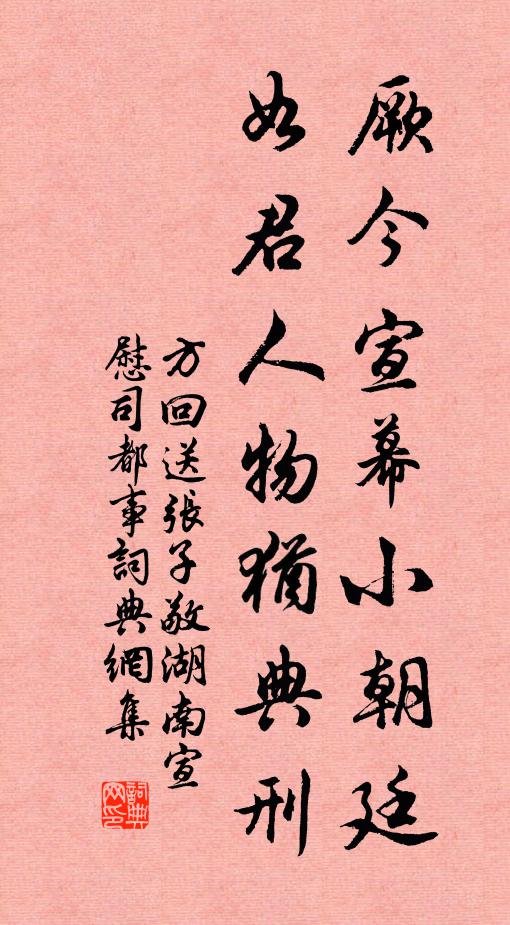 厥今宣幕小朝廷
如君人物猶典刑
方回送張子敬湖南宣
慰司都事詞典網集
詞典网印